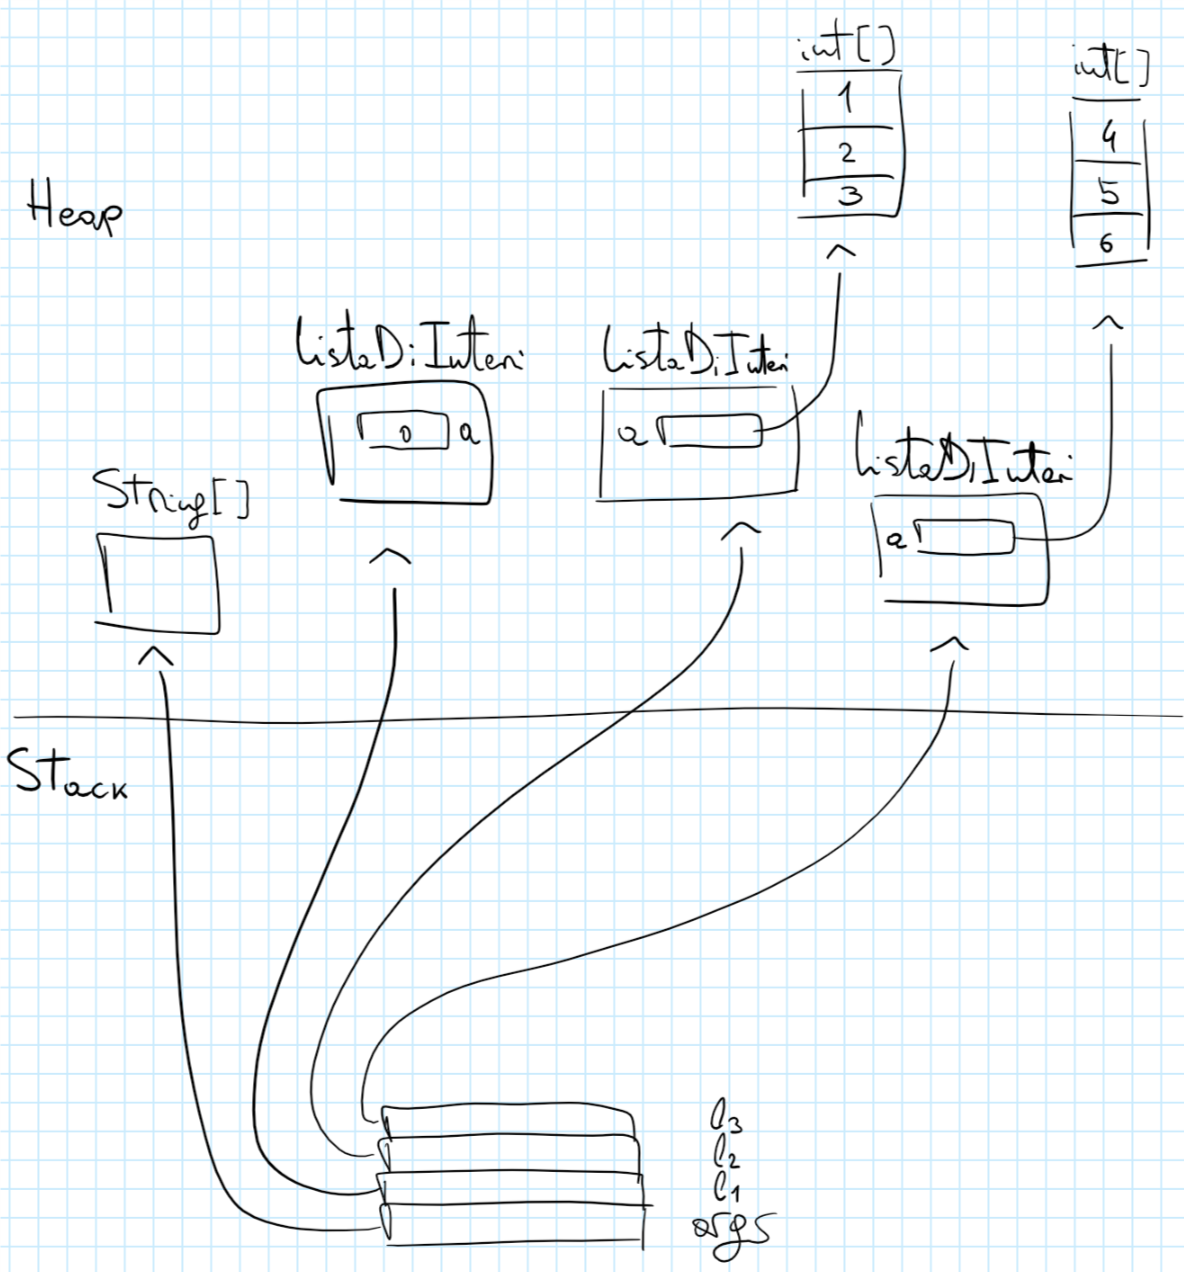 int[]
int[]
1
2
3
4
5
6
Heap
ListaDiInteri
0 a
ListaDiInteri
a
ListaDiInteri
a
String[]
Stack
l3
l2
l1
args